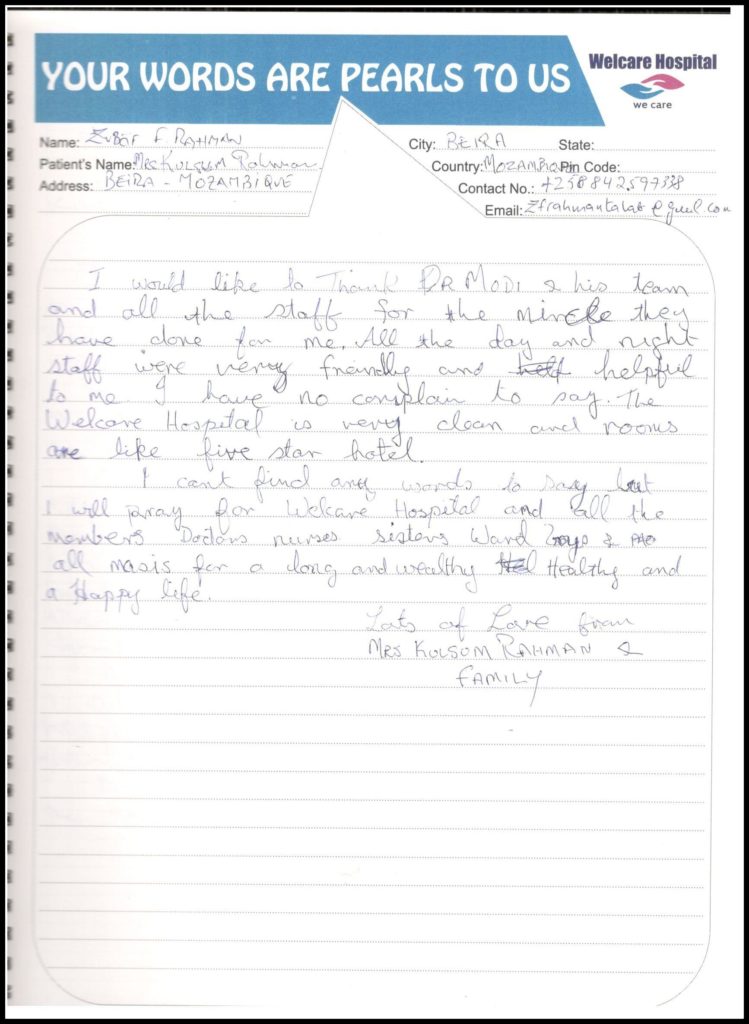 YOUR WORDS ARE PEARLS TO US
Welcare Hospital
we care
Name: F RAHMAN City: BEIRA State:
Patient's Name: MRS KULSUM Rahman. Country: MOZAMBIQUE Pin Code:
Address: BEIRA - MOZAMBIQUE Contact No.:
Email:
I would like to Thank DR MODI & his team
and all the staff for the miracle they
have done for me. All the day and night
staff were very friendly and helpful
to me. I have no complain to say. The
Welcare Hospital is very clean and rooms
are like five star hotel.
I cant find any words to say but
I will pray for Welcare Hospital and all the
members Doctors nurses sisters Ward boys &
all masis for a long and wealthy Healthy and
a Happy life.
Lots of Love from
MRS KULSUM RAHMAN &
FAMILY